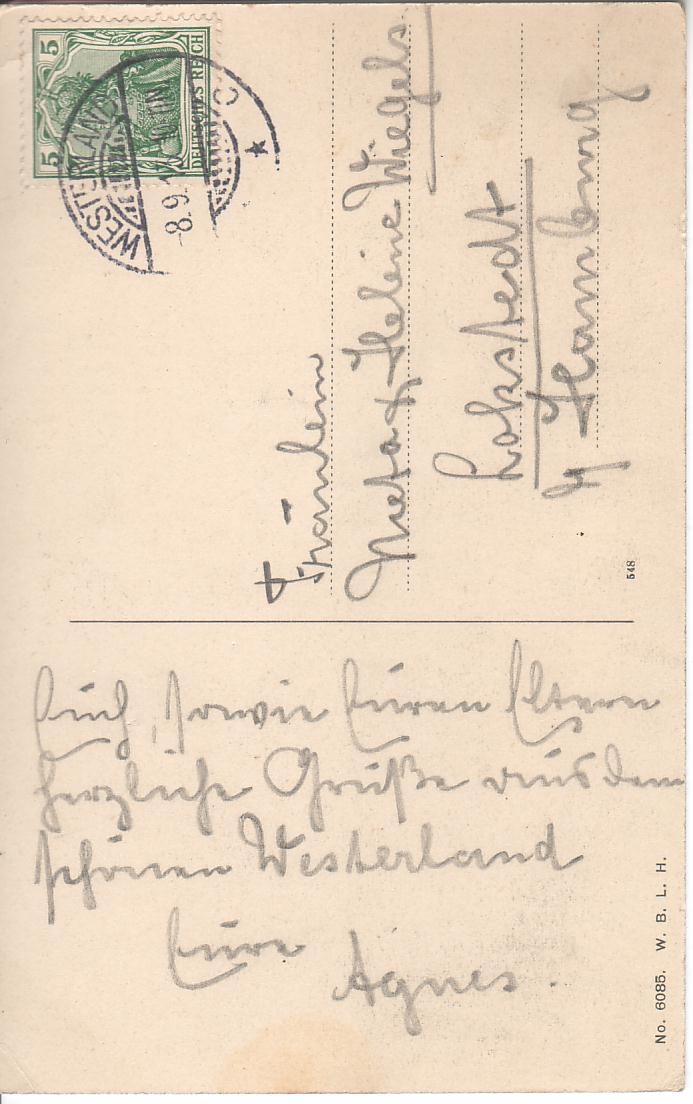 5 5
DEUTSCHES REICH
WESTERLAND
8.9.
C
Fräulein
Meta & Helene Wiegels
Lokstedt
b/ Hamburg
548
Euch, sowie Euren Eltern
herzliche Grüße aus dem
schönen Westerland
Eure
Agnes.
No. 6085. W. B. L. H.